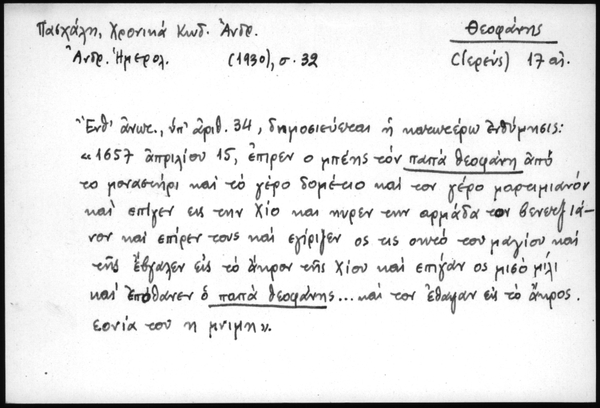 Πασχάλη, Χρονικά Κωδ. Ἄνδρ. Θεοφάνης
Ἀνδρ. Ἡμερολ. (1930), σ. 32 (ἱερεύς) 17 αἰ.
Ἔνθ' ἀνωτ., ὑπ' ἀριθ. 34, δημοσιεύεται ἡ κατωτέρω ἐνθύμησις:
«1657 ἀπριλίου 15, ἐπιρεν ο μπέης τόν παπά θεοφάνη ἀπό
το μοναστήρι καί τό γέρο δομέτιο καί τον γέρο μαρτιμιανόν
καί επίγεν εις την Χίο και ηυρεν την αρμάδα τον βενετζιά-
νον καί επίρεν τους καί εγίριζεν ος τις οκτό του μαγίου καί
τῆς ἔβγαλεν εἰς τό ἄκρον τῆς Χίου καί επιγάν ος μισό μίλι
καί ἐπόθανεν ὁ παπά θεοφάνης... καί τον ἔθαψαν εἰς τό ἄκρος.
εονία του η μνιμη».